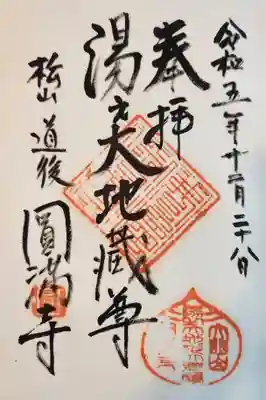 令和五年十二月二十八日
奉拝
湯之大地蔵尊
松山 道後 圓満寺